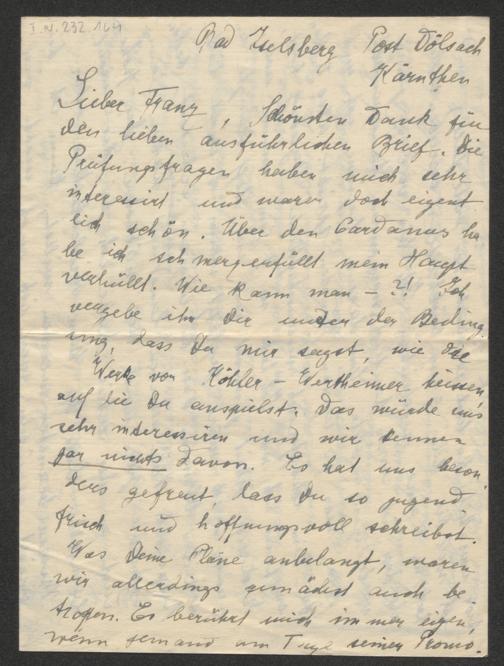 I.N. 232.164
Bad Iselsberg Post Dölsach
Kärnthen
Lieber Franz, Schönsten Dank für
den lieben ausführlichen Brief. Die
Prüfungsfragen haben mich sehr
interessirt und waren doch eigent
lich schön. Über den Cardanus ha
be ich schmerzerfüllt mein Haupt
verhüllt. Wie kann man – ?! Ich
vergebe ihn Dir unter der Beding
ung, dass Du mir sagst, wie die
Werke von Köhler – Wertheimer heissen
auf die Du anspielst. Das würde uns
sehr interessiren und wir kennen
gar nichts davon. Es hat uns beson
ders gefreut, dass Du so jugend
frisch und hoffnungsvoll schreibst.
Was Deine Pläne anbelangt, waren
wir allerdings zunächst auch be
troffen. Es berührt mich immer eigen,
wenn jemand am Tage seiner Promo